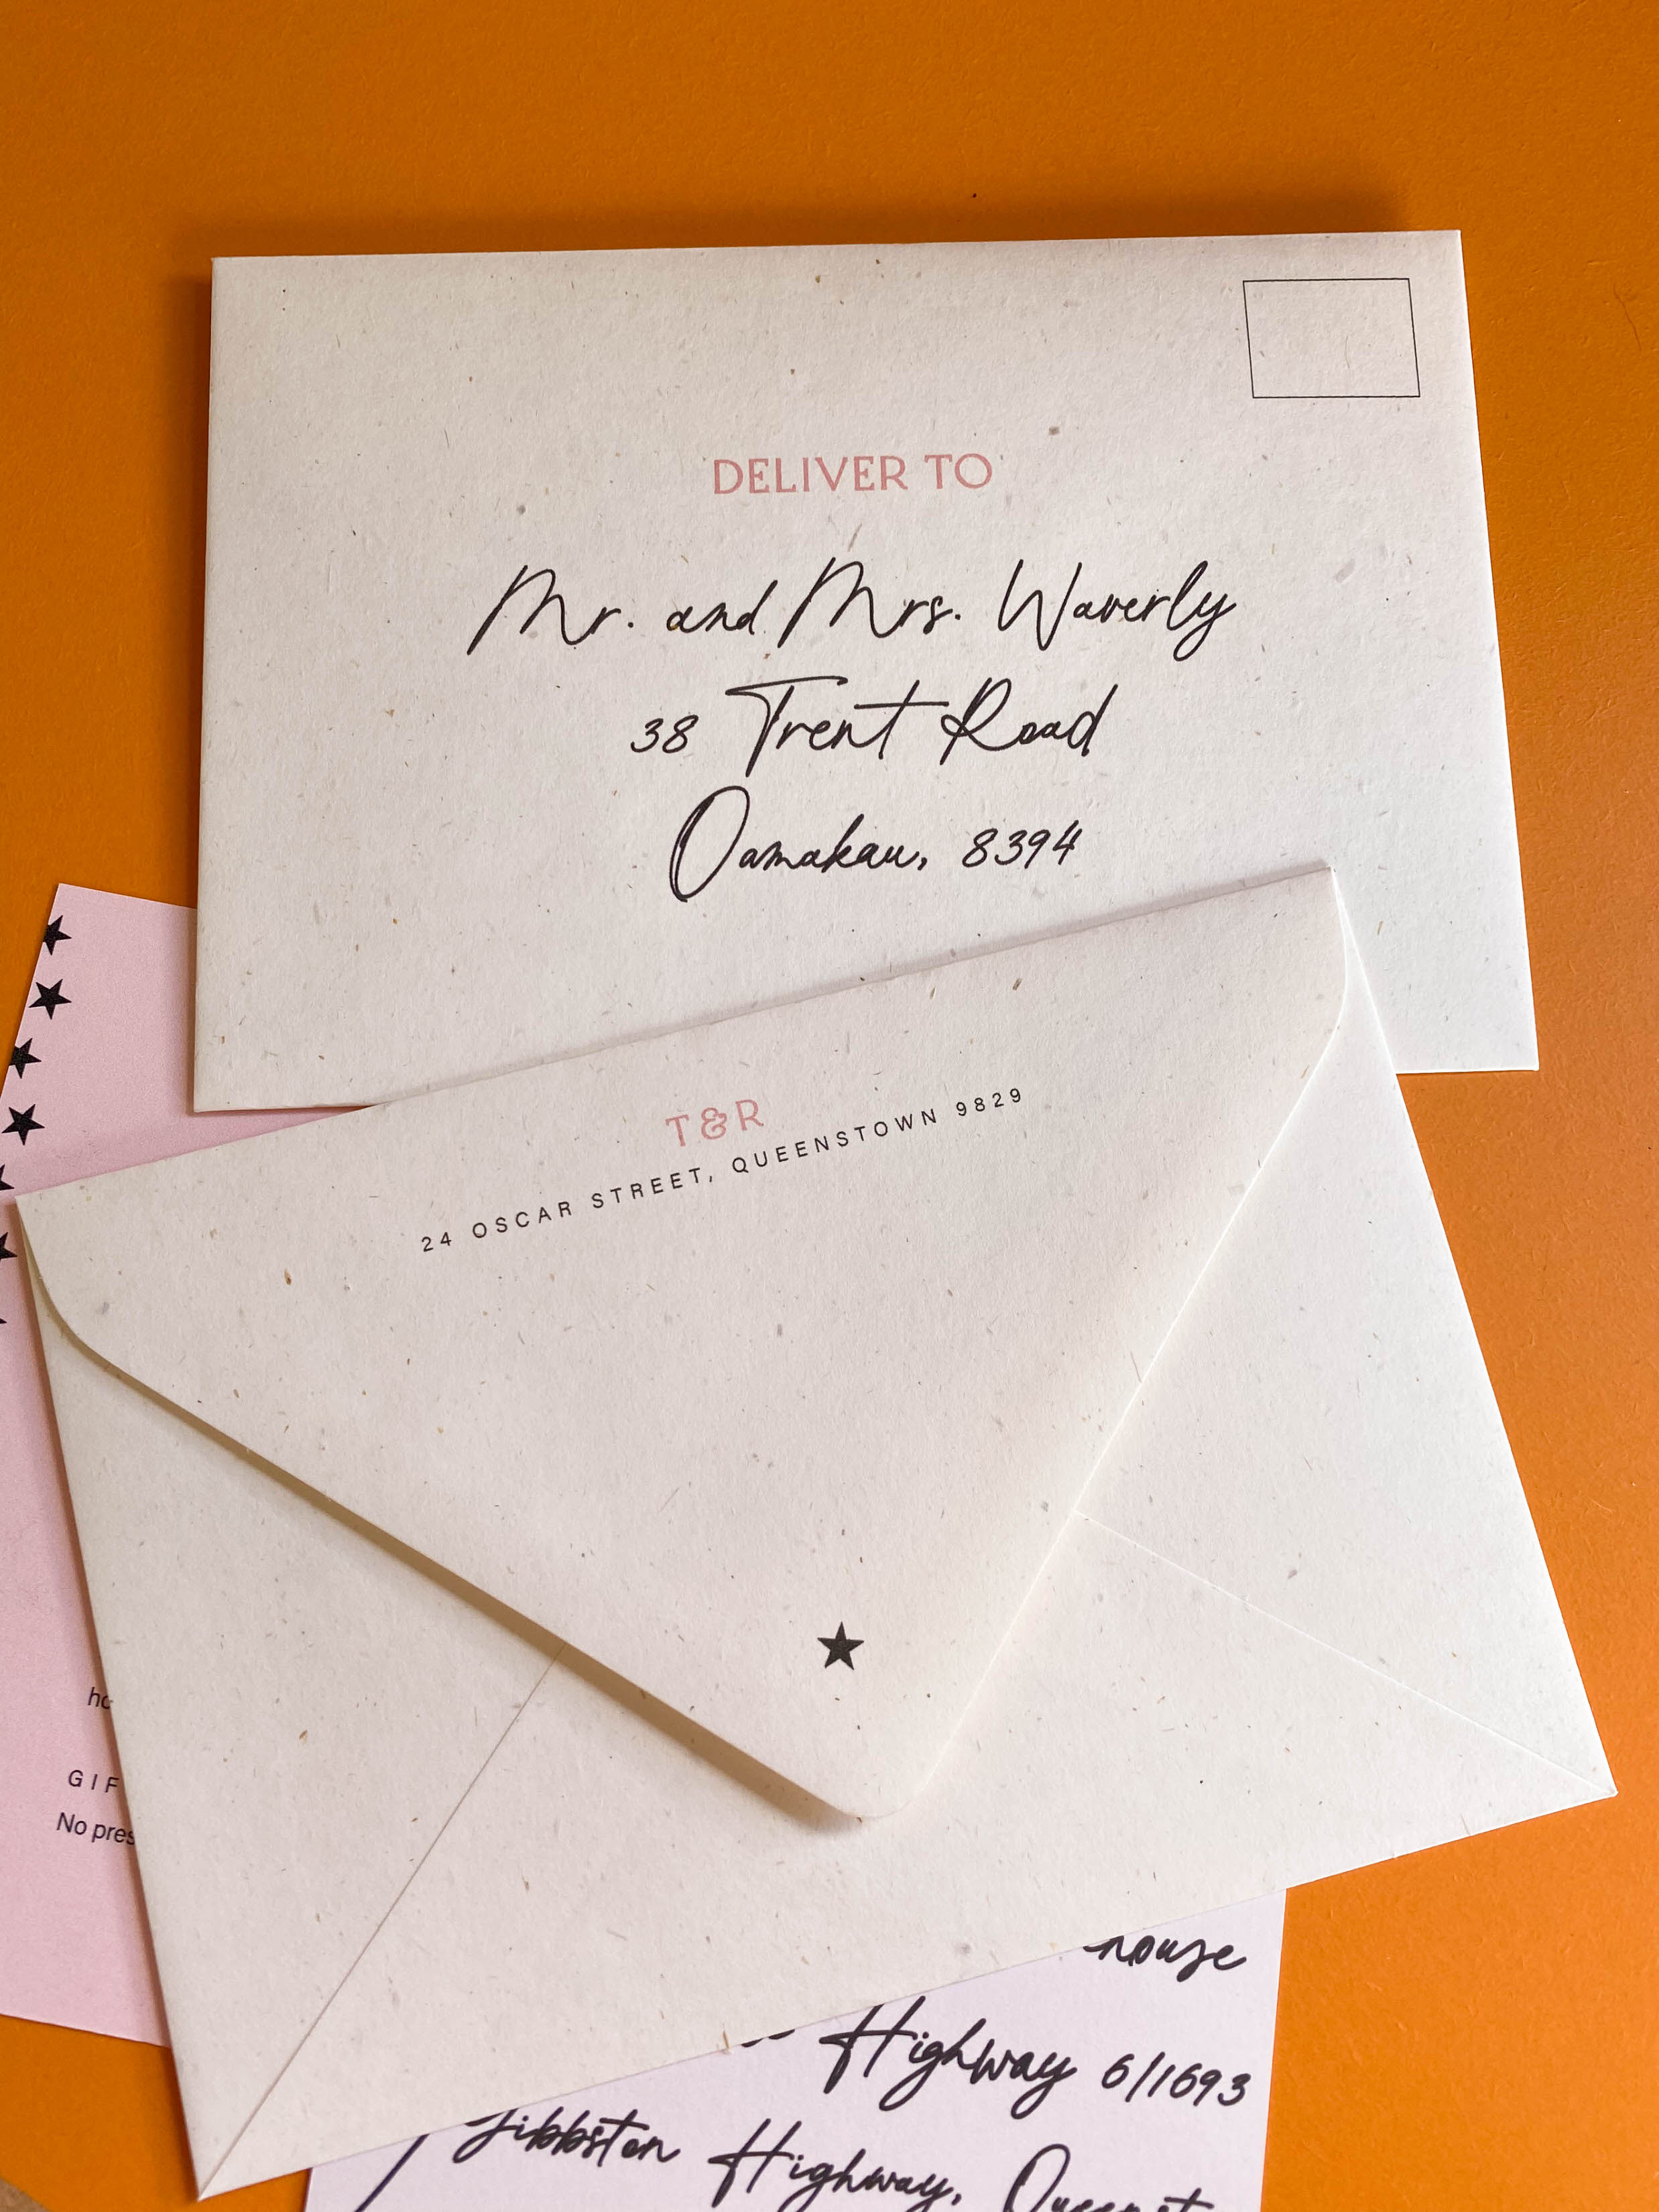 DELIVER TO
Mr. and Mrs. Waverly
38 Trent Road
Oamakau, 8394
T&R
24 OSCAR STREET, QUEENSTOWN 9829
GIF
No pres
house
Highway 6/1693
Gibbston Highway, Queenst